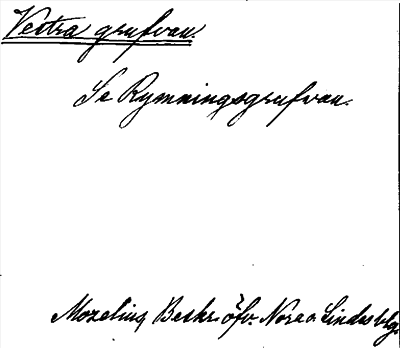 Vestra grufvan.
Se Rymningsgrufvan.
Mozelius Beskr. öfv. Nora o Lindes blg.